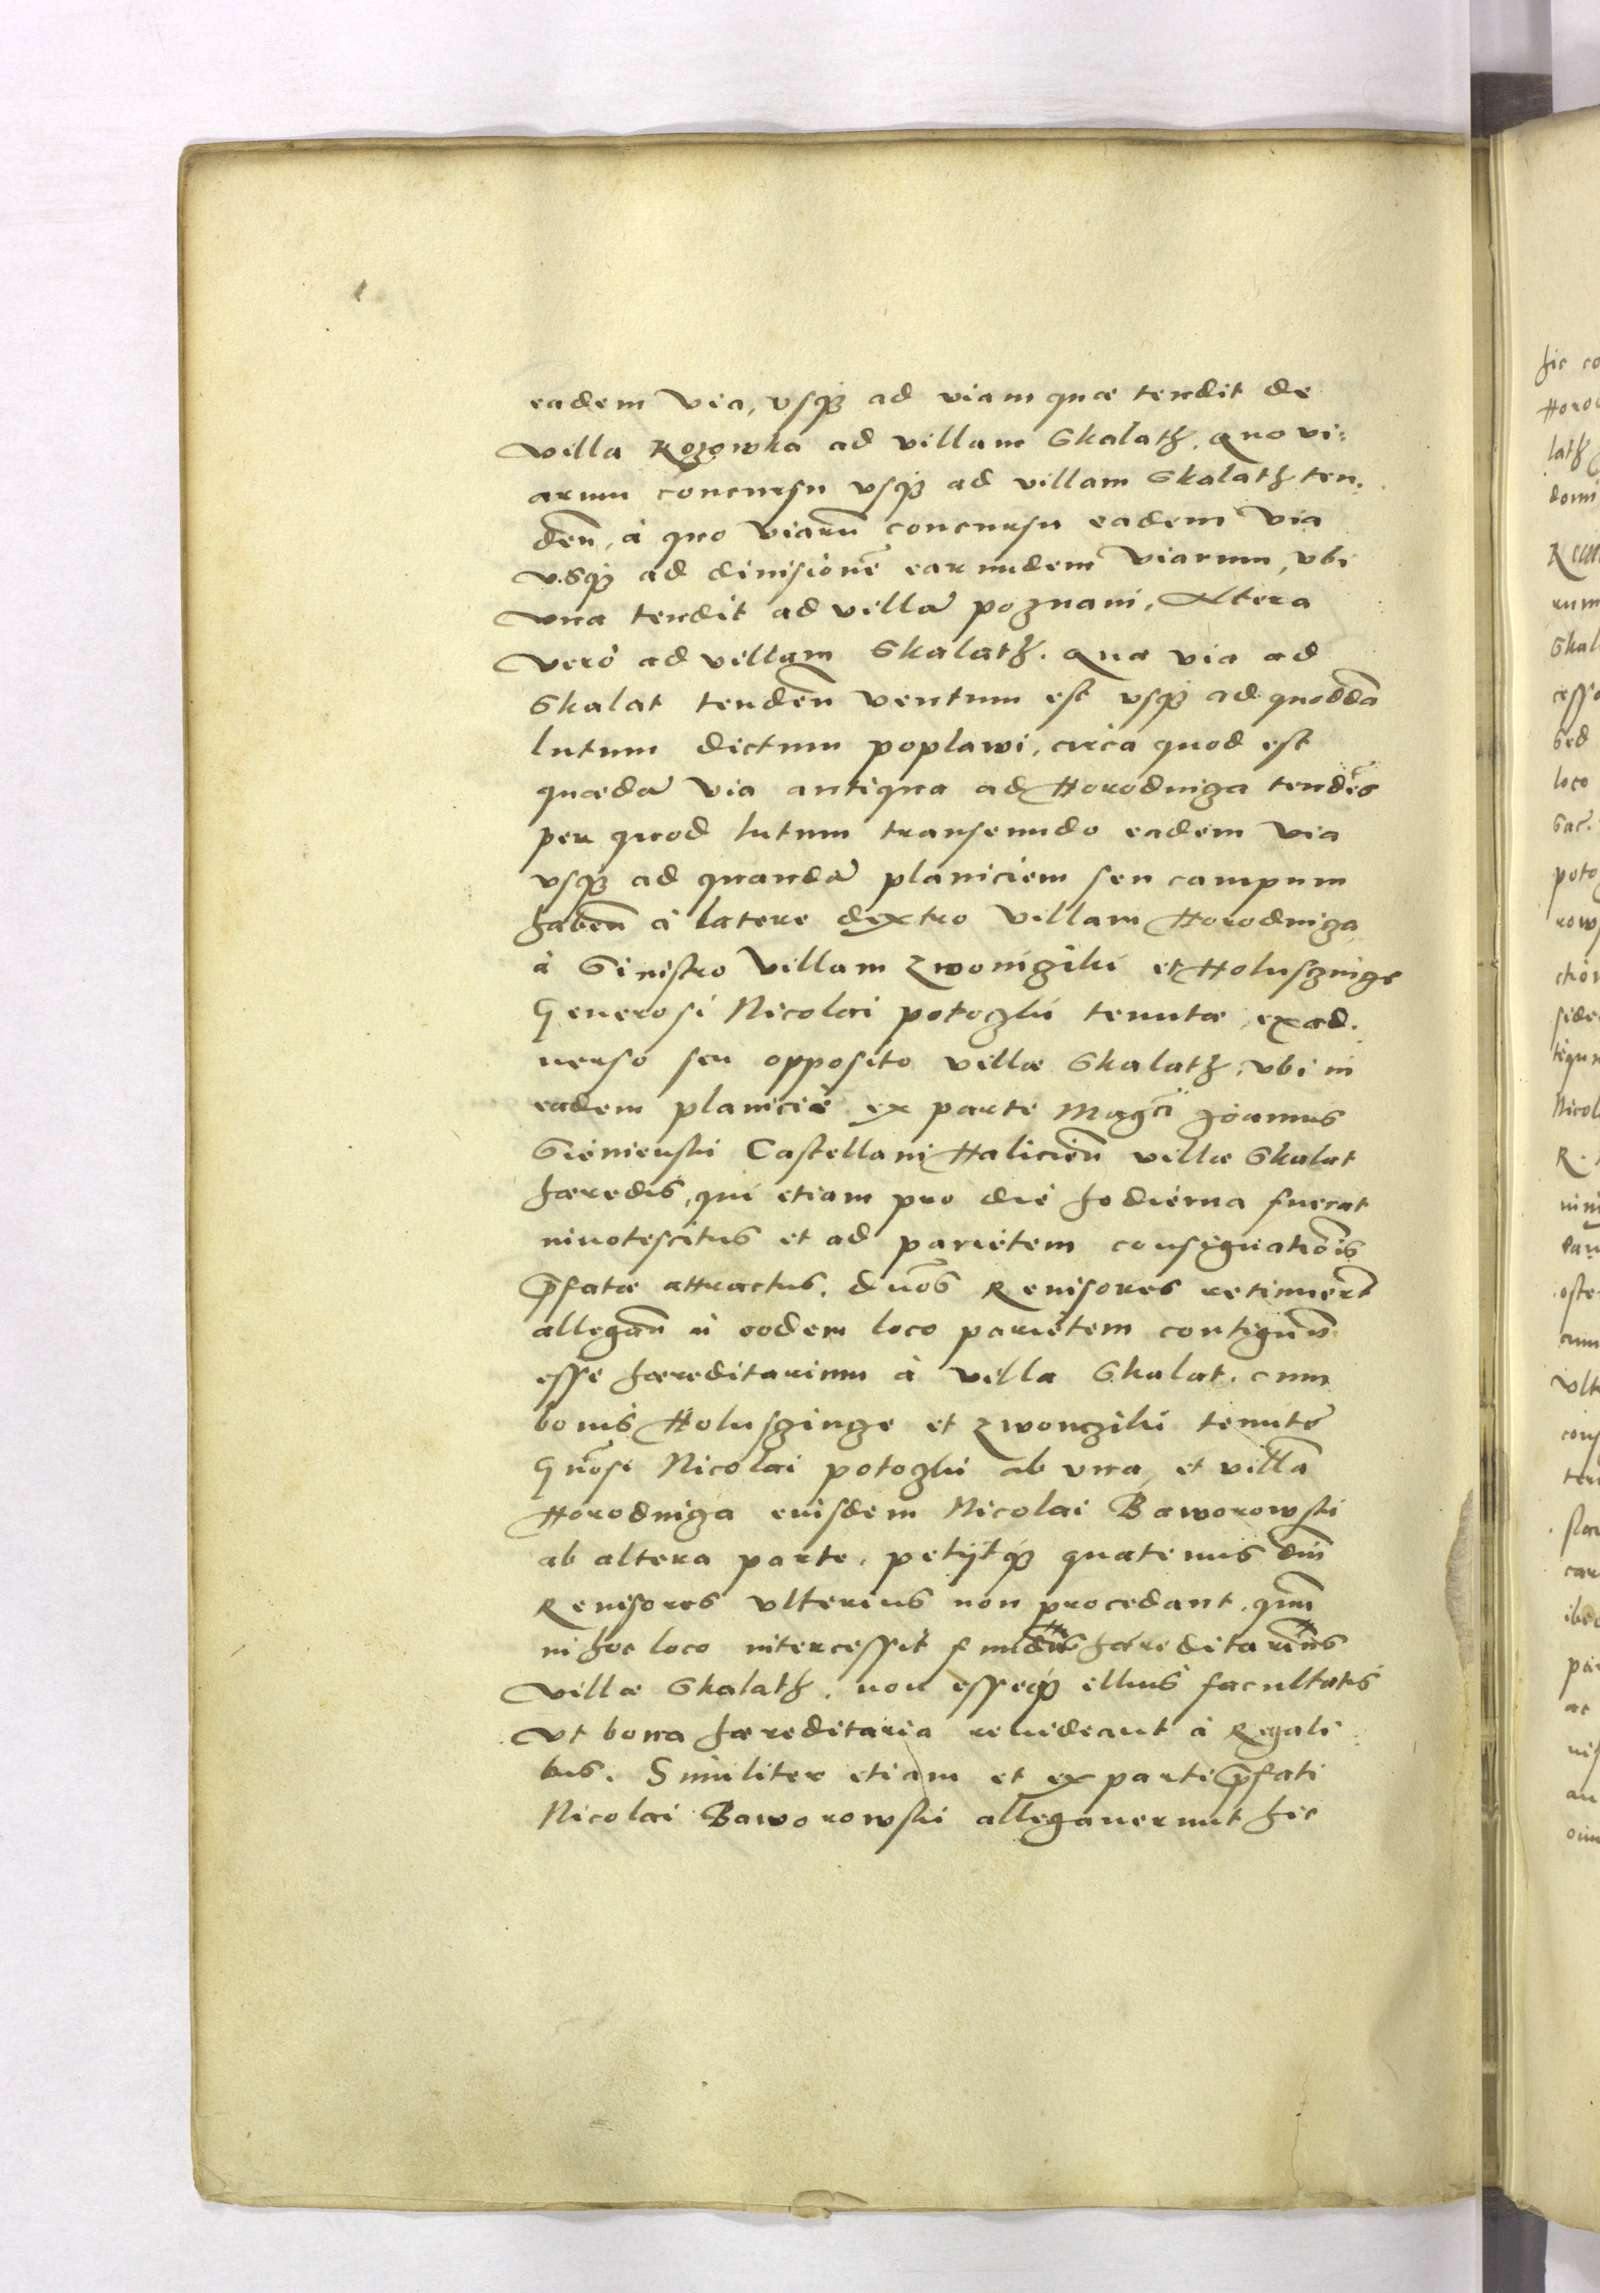 eadem via, vsqȝ ad viam quæ tendit de
villa Kozowka ad villam Skalath. quo vi=
arum concursu vsqȝ ad villam Skalath ten.
deñ, à quo viarũ concursu eadem via
vsqȝ ad diuisionẽ earundem viarum, vbi
vna tendit ad villã poznani, Altera
verò ad villam Skalath. Qua via ad
Skalat tendeñ ventum est vsqȝ ad quoddã
lutum dictum poplawi, circa quod est
quædã via antiqua ad Horodniza tendẽs
per quod lutum transeundo eadem via
vsqȝ ad quandã planiciem seu campum
habeñ à latere dextro villam Horodniza
à Sinistro villam zwonigilii et Holuszinge
Generosi Nicolai potoczkii tenutæ, ex ad.
uerso seu opposito villæ Skalath, vbi in
eadem planicie ex parte Magci Joannis
Sienienskii Castellani Halicieñ villæ Skalat
hæredis, qui etiam pro die hodierna fuerat
innotescitus et ad parietem consignationis
p̃fatæ attractus. Duos Reuisores retinuert
allegañ in eodem loco parietem contiguũ
esse hæreditarium à villa Skalat. cum
bonis Holuszinge et zwonczilii tenutæ
Gñosi Nicolai potoczkii ab vna, et villã
Horodniza eiusdem Nicolai Baworowskii
ab altera parte, petijtqȝ quatenus dñi
Reuisores vlterius non procedant, qm̃
in hoc loco intercessit fundus hæreditarius
villæ Skalath, non esseqȝ illius facultatis
vt bona hæreditaria reuideant à Regali
bus. Similiter etiam et ex parte p̃fati
Nicolai Baworowskii allegauerunt hic